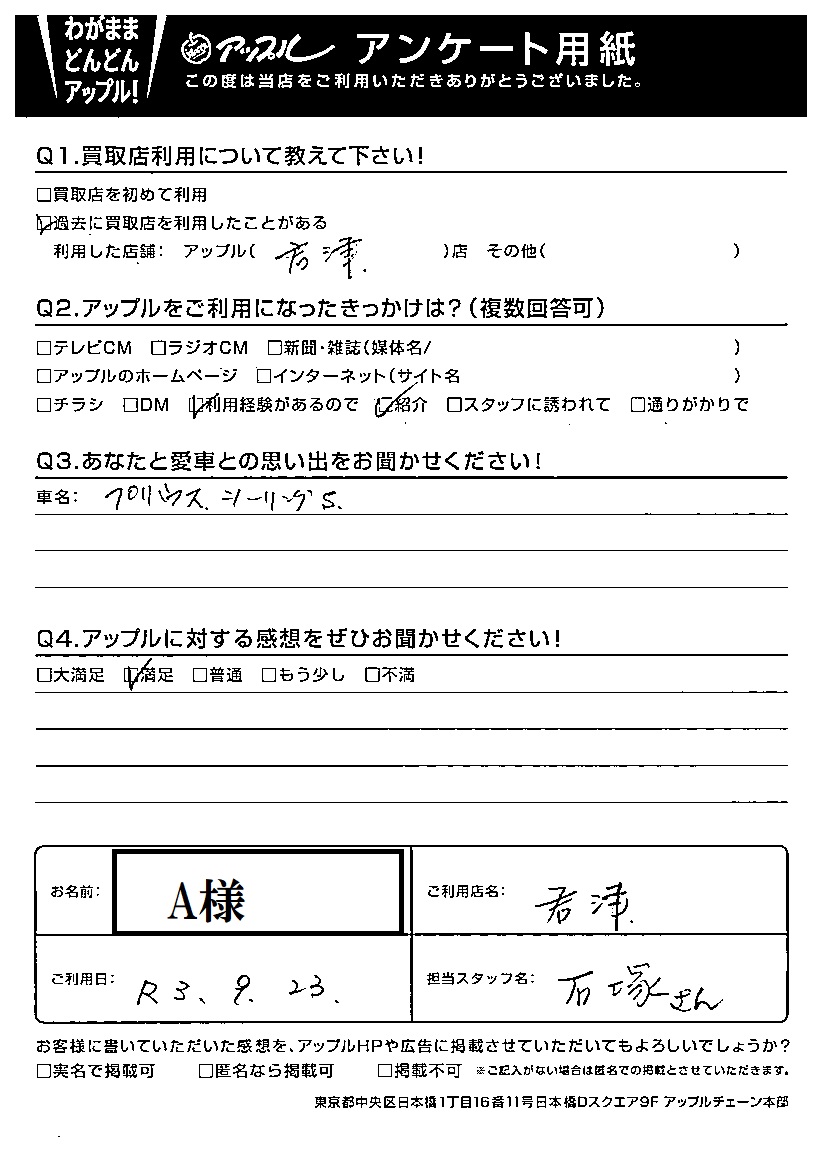 わがまま
どんどん
アップル!
アップル アンケート用紙
この度は当店をご利用いただきありがとうございました。
Q1.買取店利用について教えて下さい!
□買取店を初めて利用
☑過去に買取店を利用したことがある
利用した店舗: アップル( 君津. )店 その他( )
Q2.アップルをご利用になったきっかけは?(複数回答可)
□テレビCM □ラジオCM □新聞・雑誌(媒体名/ )
□アップルのホームページ □インターネット(サイト名 )
□チラシ □DM ☑利用経験があるので ☑紹介 □スタッフに誘われて □通りがかりで
Q3.あなたと愛車との思い出をお聞かせください!
車名: プリウス. ツーリングS.
Q4.アップルに対する感想をぜひお聞かせください!
□大満足 ☑満足 □普通 □もう少し □不満
お名前: A様 ご利用店名: 君津.
ご利用日: R3、9. 23. 担当スタッフ名: 石塚さん
お客様に書いていただいた感想を、アップルHPや広告に掲載させていただいてもよろしいでしょうか?
□実名で掲載可 □匿名なら掲載可 □掲載不可 ※ご記入がない場合は匿名での掲載とさせていただきます。
東京都中央区日本橋1丁目16番11号日本橋Dスクエア9F アップルチェーン本部